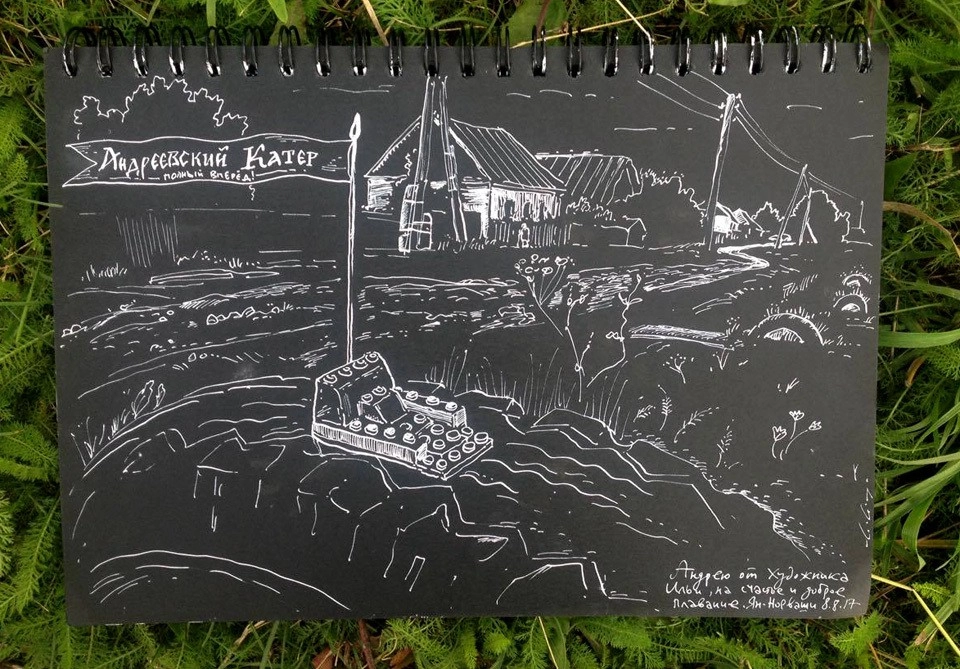 Андреевский Катер
полный вперёд!
Андрею от Художника
Ильи, на счастье и доброе
плавание. Ян-Норкаши 8.8.17